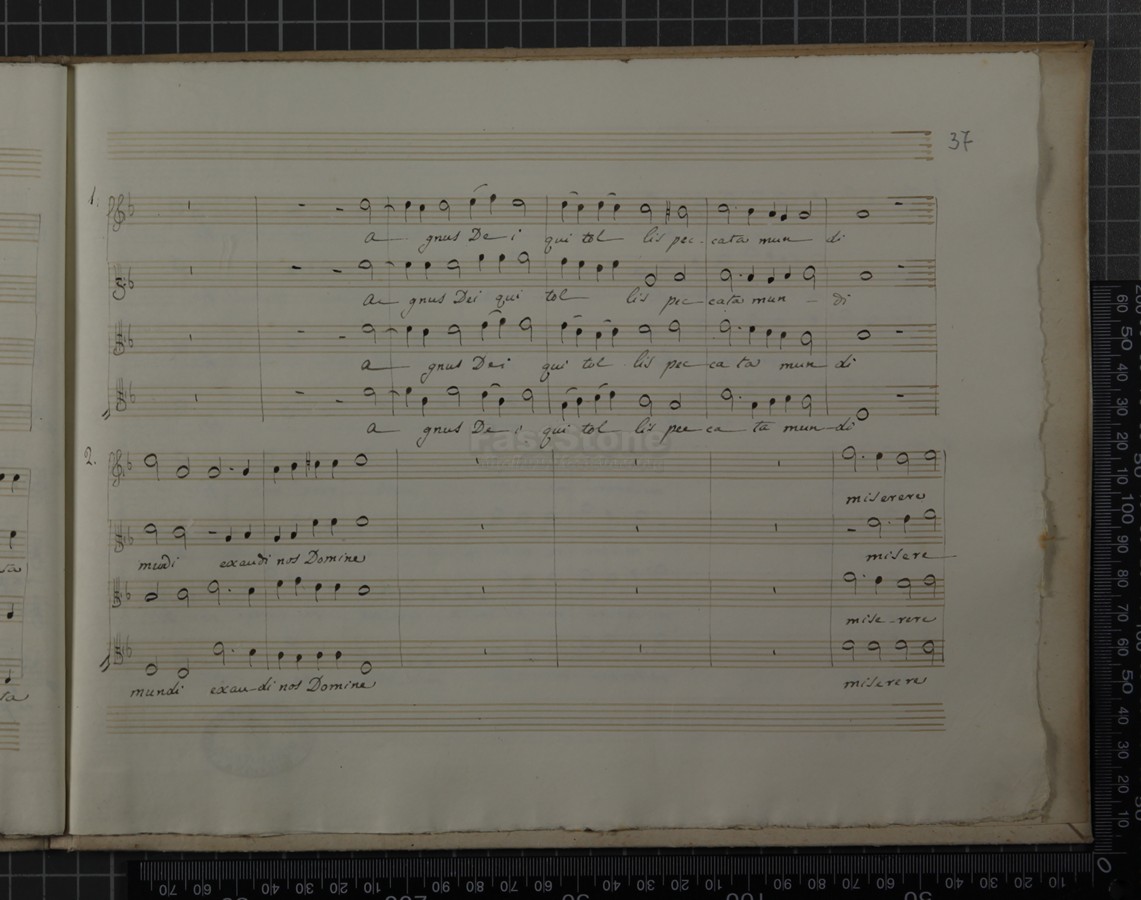 37
1.
a gnus De i qui tol lis pec cata mun di
a gnus Dei qui tol lis pec cata mun di
a gnus Dei qui tol lis pec ca ta mun di
a gnus De i qui tol lis pec ca ta mun di
2.
miserere
mudi exaudi nos Domine misere
mise rere
mundi exau di nos Domine miserere